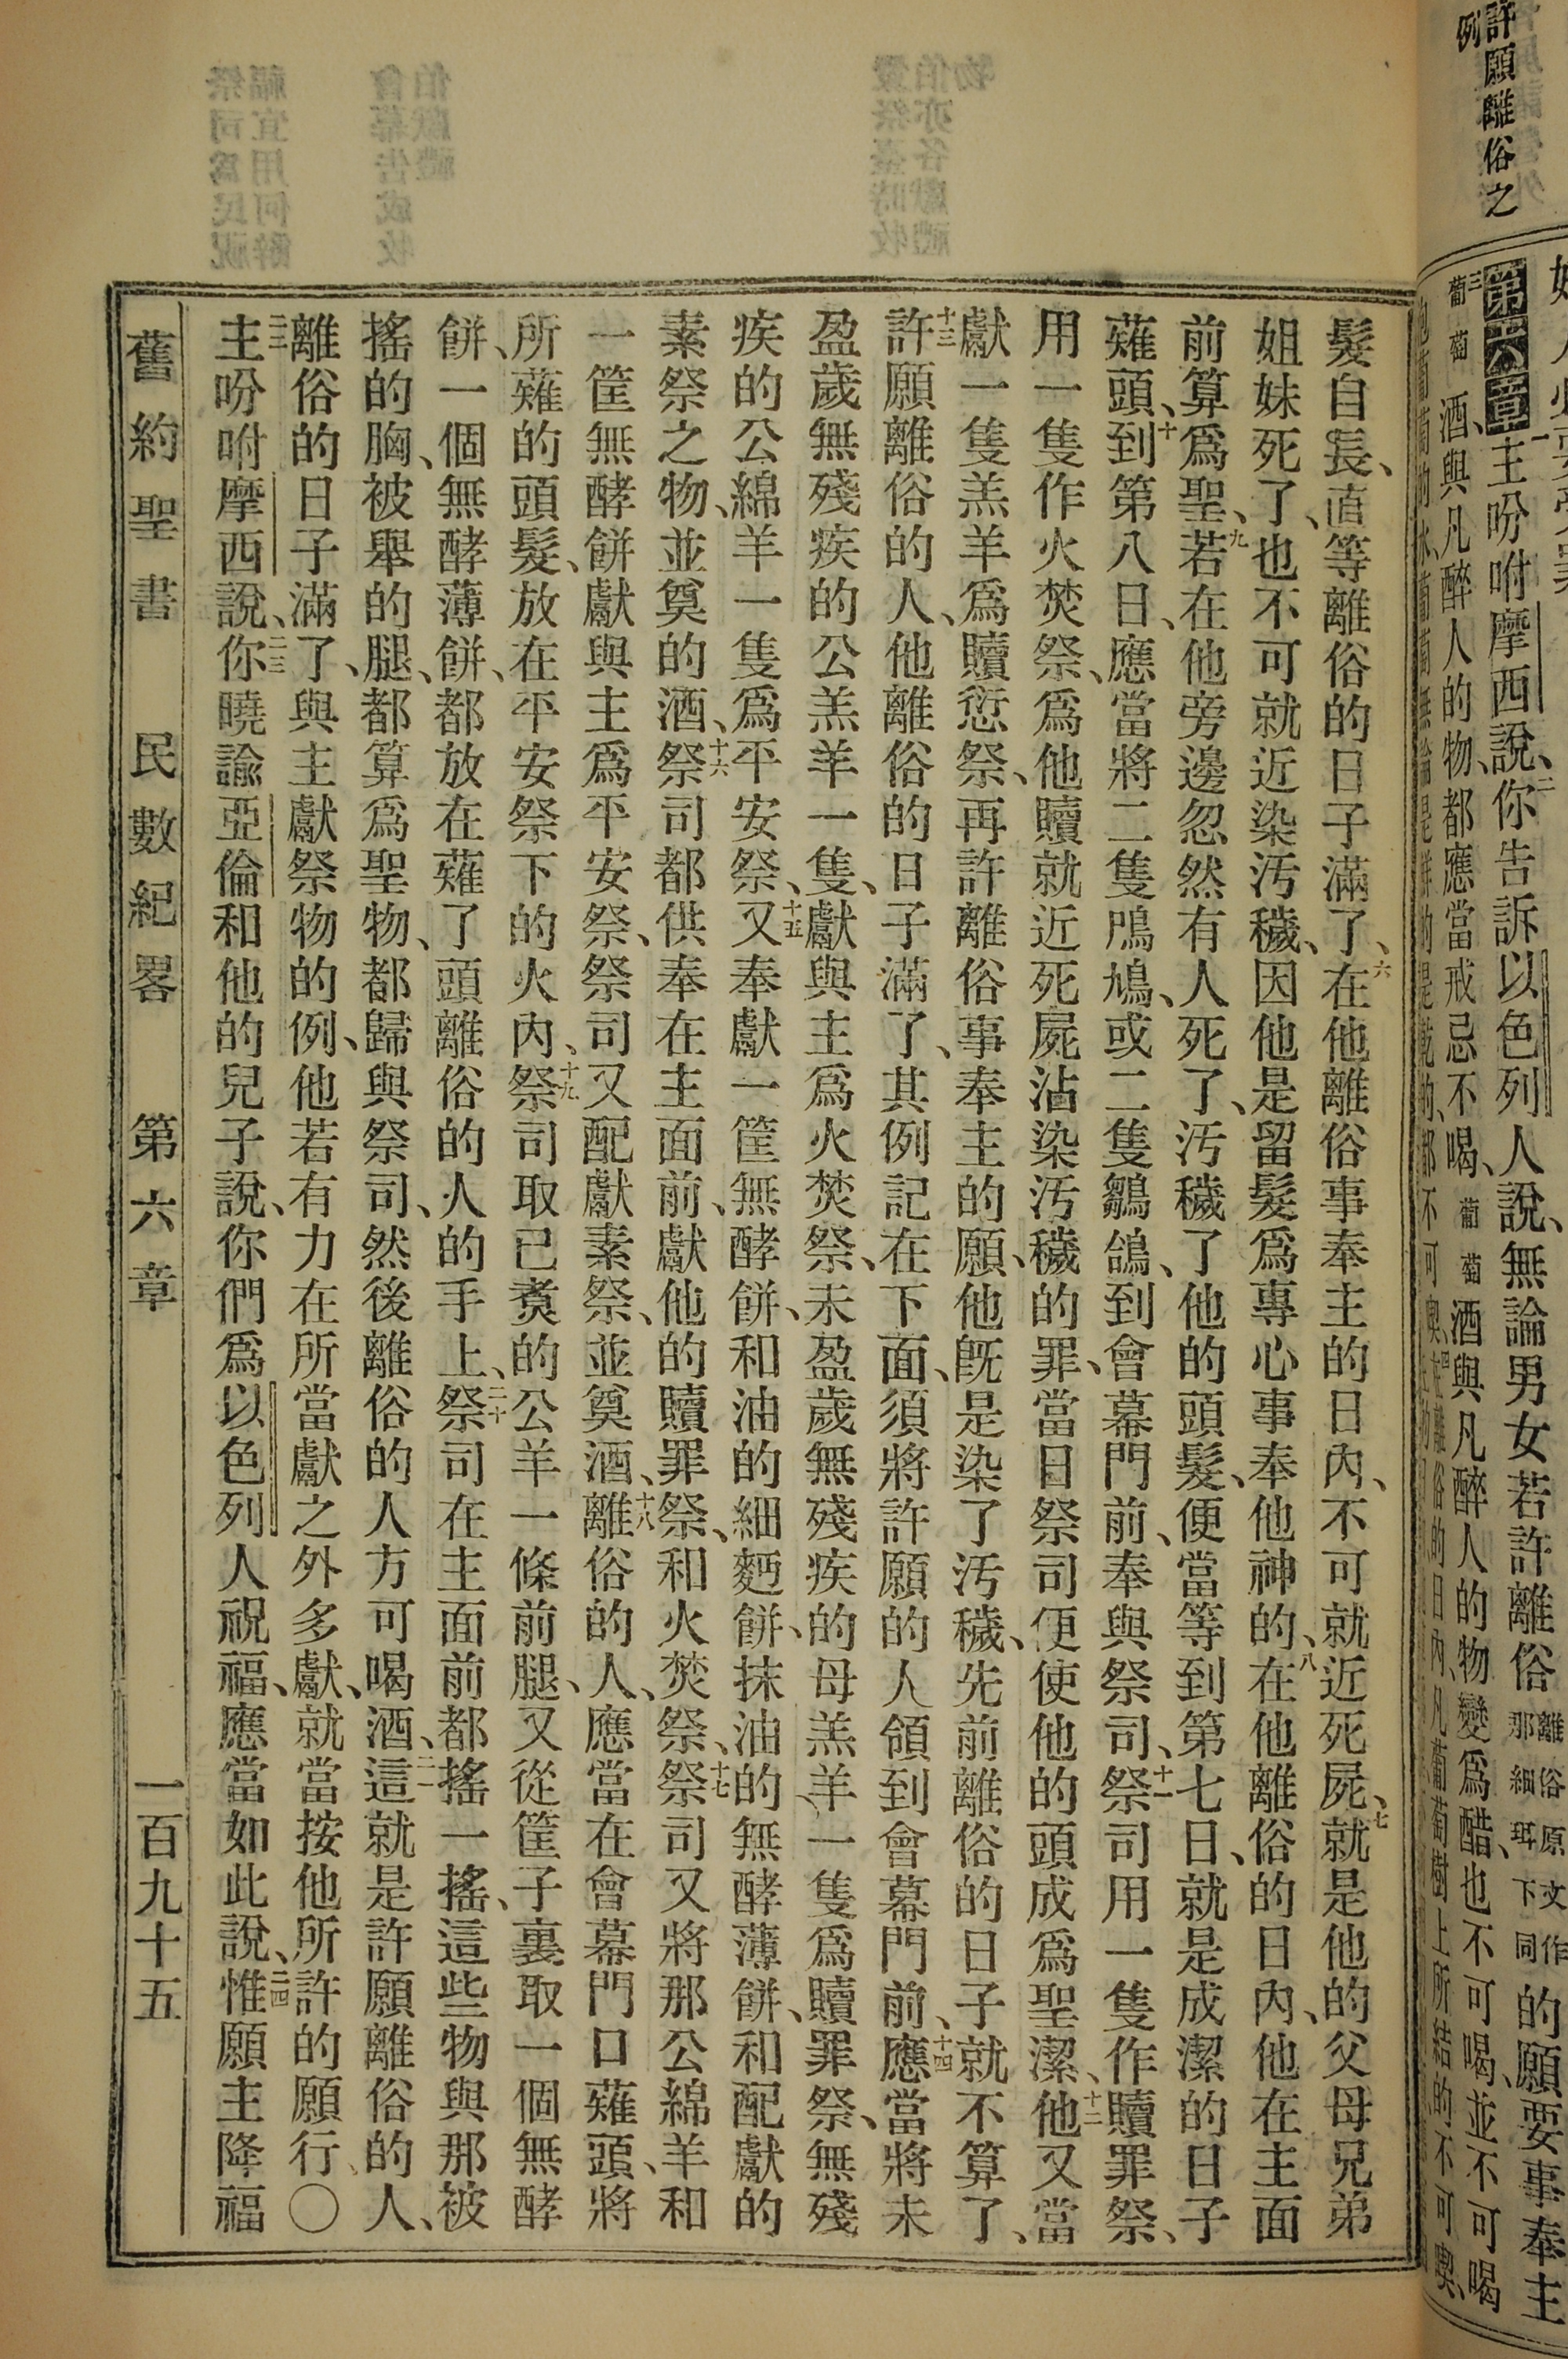 許願離俗之
例
第六章一主吩咐摩西說、二你告訴以色列人說、無論男女若許離俗離俗原文作那細珥下同的願要事奉主
三葡萄酒、與凡醉人的物、都應當戒忌不喝、葡萄酒與凡醉人的物變爲醋、也不可喝、並不可喝
髮自長、直等離俗的日子滿了、六在他離俗事奉主的日內、不可就近死屍、七就是他的父母兄弟
姐妹死了、也不可就近染汚穢、因他是留髮爲專心事奉他神的、八在他離俗的日內、他在主面
前算爲聖、九若在他旁邊忽然有人死了、汚穢了他的頭髮、便當等到第七日、就是成潔的日子
薙頭、十到第八日、應當將二隻鳲鳩、或二隻鷄鴿、到會幕門前、奉與祭司、十一祭司用一隻作贖罪祭、
用一隻作火焚祭、爲他贖就近死屍沾染汚穢的罪、當日祭司便使他的頭成爲聖潔、十二他又當
獻一隻羔羊爲贖愆祭、再許離俗事奉主的願、他旣是染了汚穢、先前離俗的日子就不算了、
十三許願離俗的人、他離俗的日子滿了、其例記在下面、須將許願的人領到會幕門前、十四應當將未
盈歲無殘疾的公羔羊一隻、獻與主爲火焚祭、未盈歲無殘疾的母羔羊一隻爲贖罪祭、無殘
疾的公綿羊一隻爲平安祭、十五又奉獻一筐無酵餅、和油的細麪餅、抹油的無酵薄餅、和配獻的
素祭之物、並奠的酒、十六祭司都供奉在主面前、獻他的贖罪祭、和火焚祭、十七祭司又將那公綿羊和
一筐無酵餅獻與主爲平安祭、祭司又配獻素祭、並奠酒、十八離俗的人、應當在會幕門口薙頭、將
所薙的頭髮、放在平安祭下的火內、十九祭司取已煑的公羊一條前腿、又從筐子裏取一個無酵
餅、一個無酵薄餅、都放在薙了頭離俗的人的手上、二十祭司在主面前都搖一搖、這些物與那被
搖的胸、被舉的腿、都算爲聖物、都歸與祭司、然後離俗的人方可喝酒、二一這就是許願離俗的人、
離俗的日子滿了、與主獻祭物的例、他若有力在所當獻之外多獻、就當按他所許的願行、〇
二二主吩咐摩西說、二三你曉諭亞倫和他的兒子說、你們爲以色列人祝福、應當如此說、二四惟願主降福
舊約聖書　民數紀畧　第六章　一百九十五